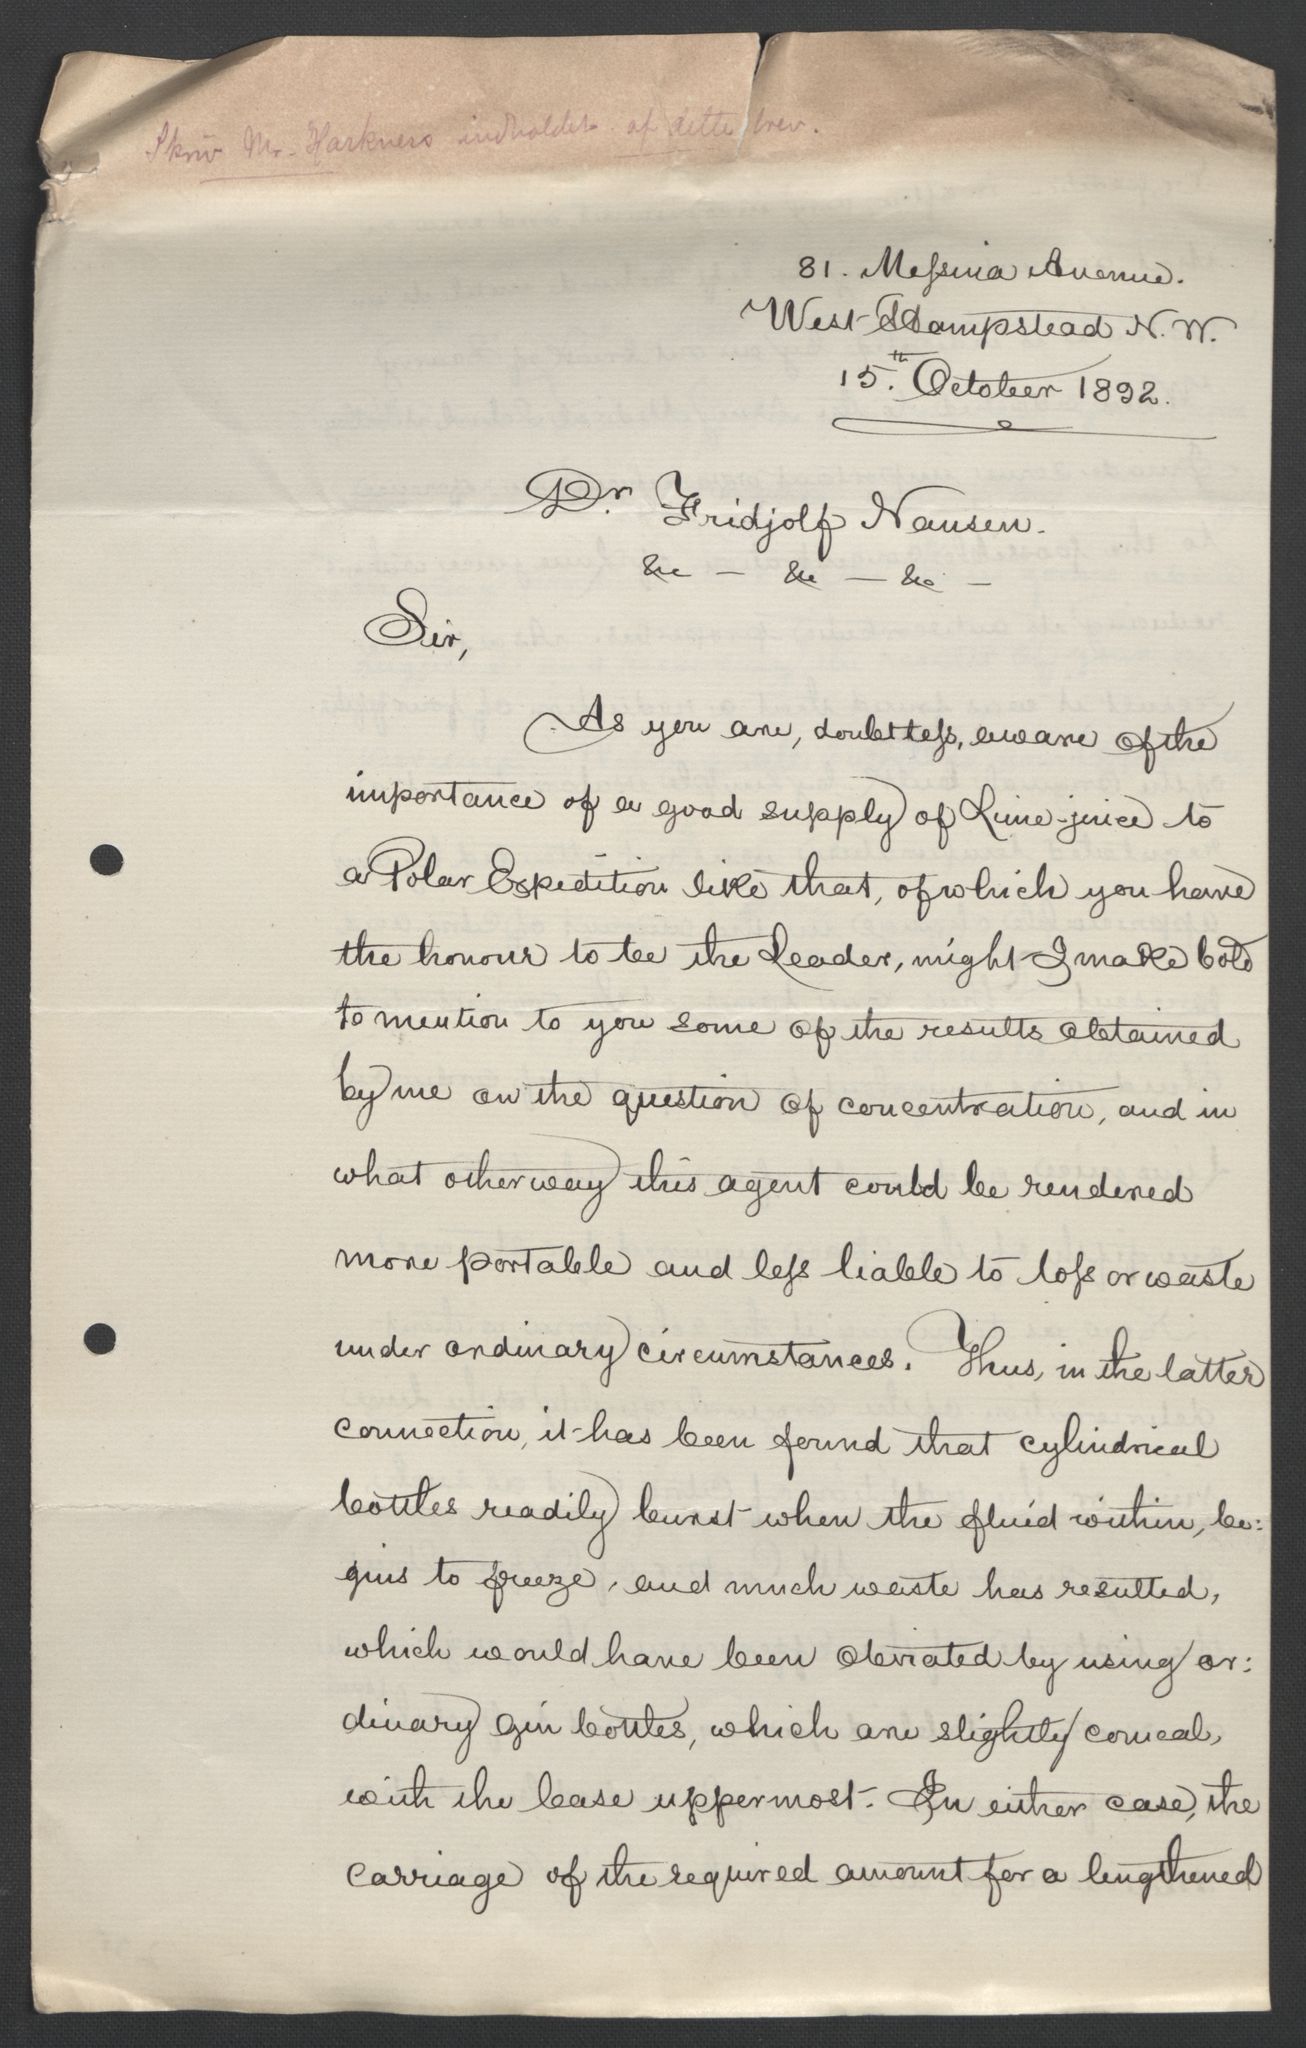 Skriv Mr. Harkness indholdet af dette brev.
81. Messina Avenue.
West Hampstead N. W.
15th. October 1892.
Dr. Fridjolf Nansen.
&c — &c — &c —
Sir,
As you are, doubtless, aware of the
importance of a good supply of Lime-juice to
a Polar Expedition like that, of which you have
the honour to be the Leader, might I make bold
to mention to you some of the results obtained
by me on the question of concentration, and in
what other way this agent could be rendered
more portable and less liable to loss or waste
under ordinary circumstances. Thus, in the latter
connection, it has been found that cylindrical
bottles readily burst when the fluid within, be:
gins to freeze, and much waste has resulted,
which would have been obviated by using or:
dinary gin bottles, which are slightly conical,
with the base uppermost. In either case, the
carriage of the required amount for a lengthened